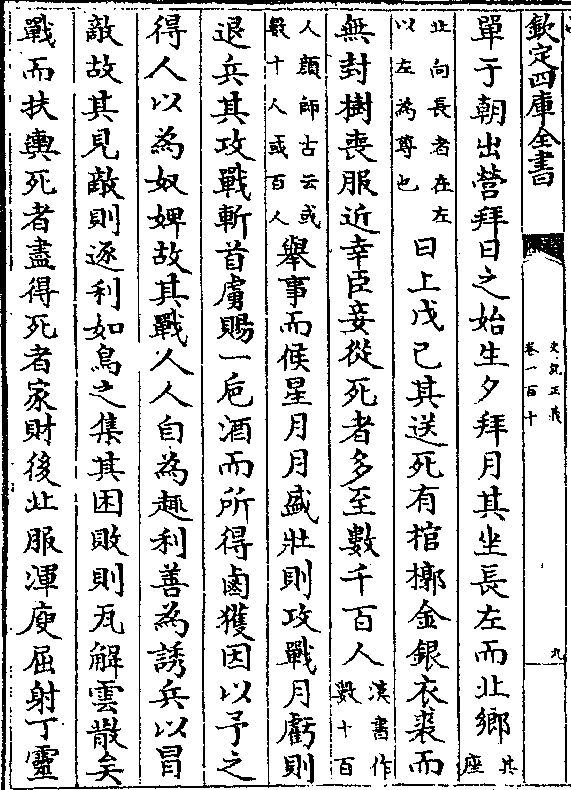 欽定四庫全書
史記正義
卷一百十
九
單于朝出營拜日之始生夕拜月其坐長左而北鄉其座
北向長者在左以左為尊也日上戊己其送死有棺槨金銀衣裘而
無封樹喪服近幸臣妾從死者多至數千百人漢書作數十百
人顔師古云或數十人或百人舉事而候星月月盛壯則攻戰月虧則
退兵其攻戰斬首虜賜一巵酒而所得鹵獲因以予之
得人以為奴婢故其戰人人自為趣利善為誘兵以冒
敵故其見敵則逐利如鳥之集其困敗則瓦解雲散矣
戰而扶輿死者盡得死者家財後北服渾庾屈射丁靈